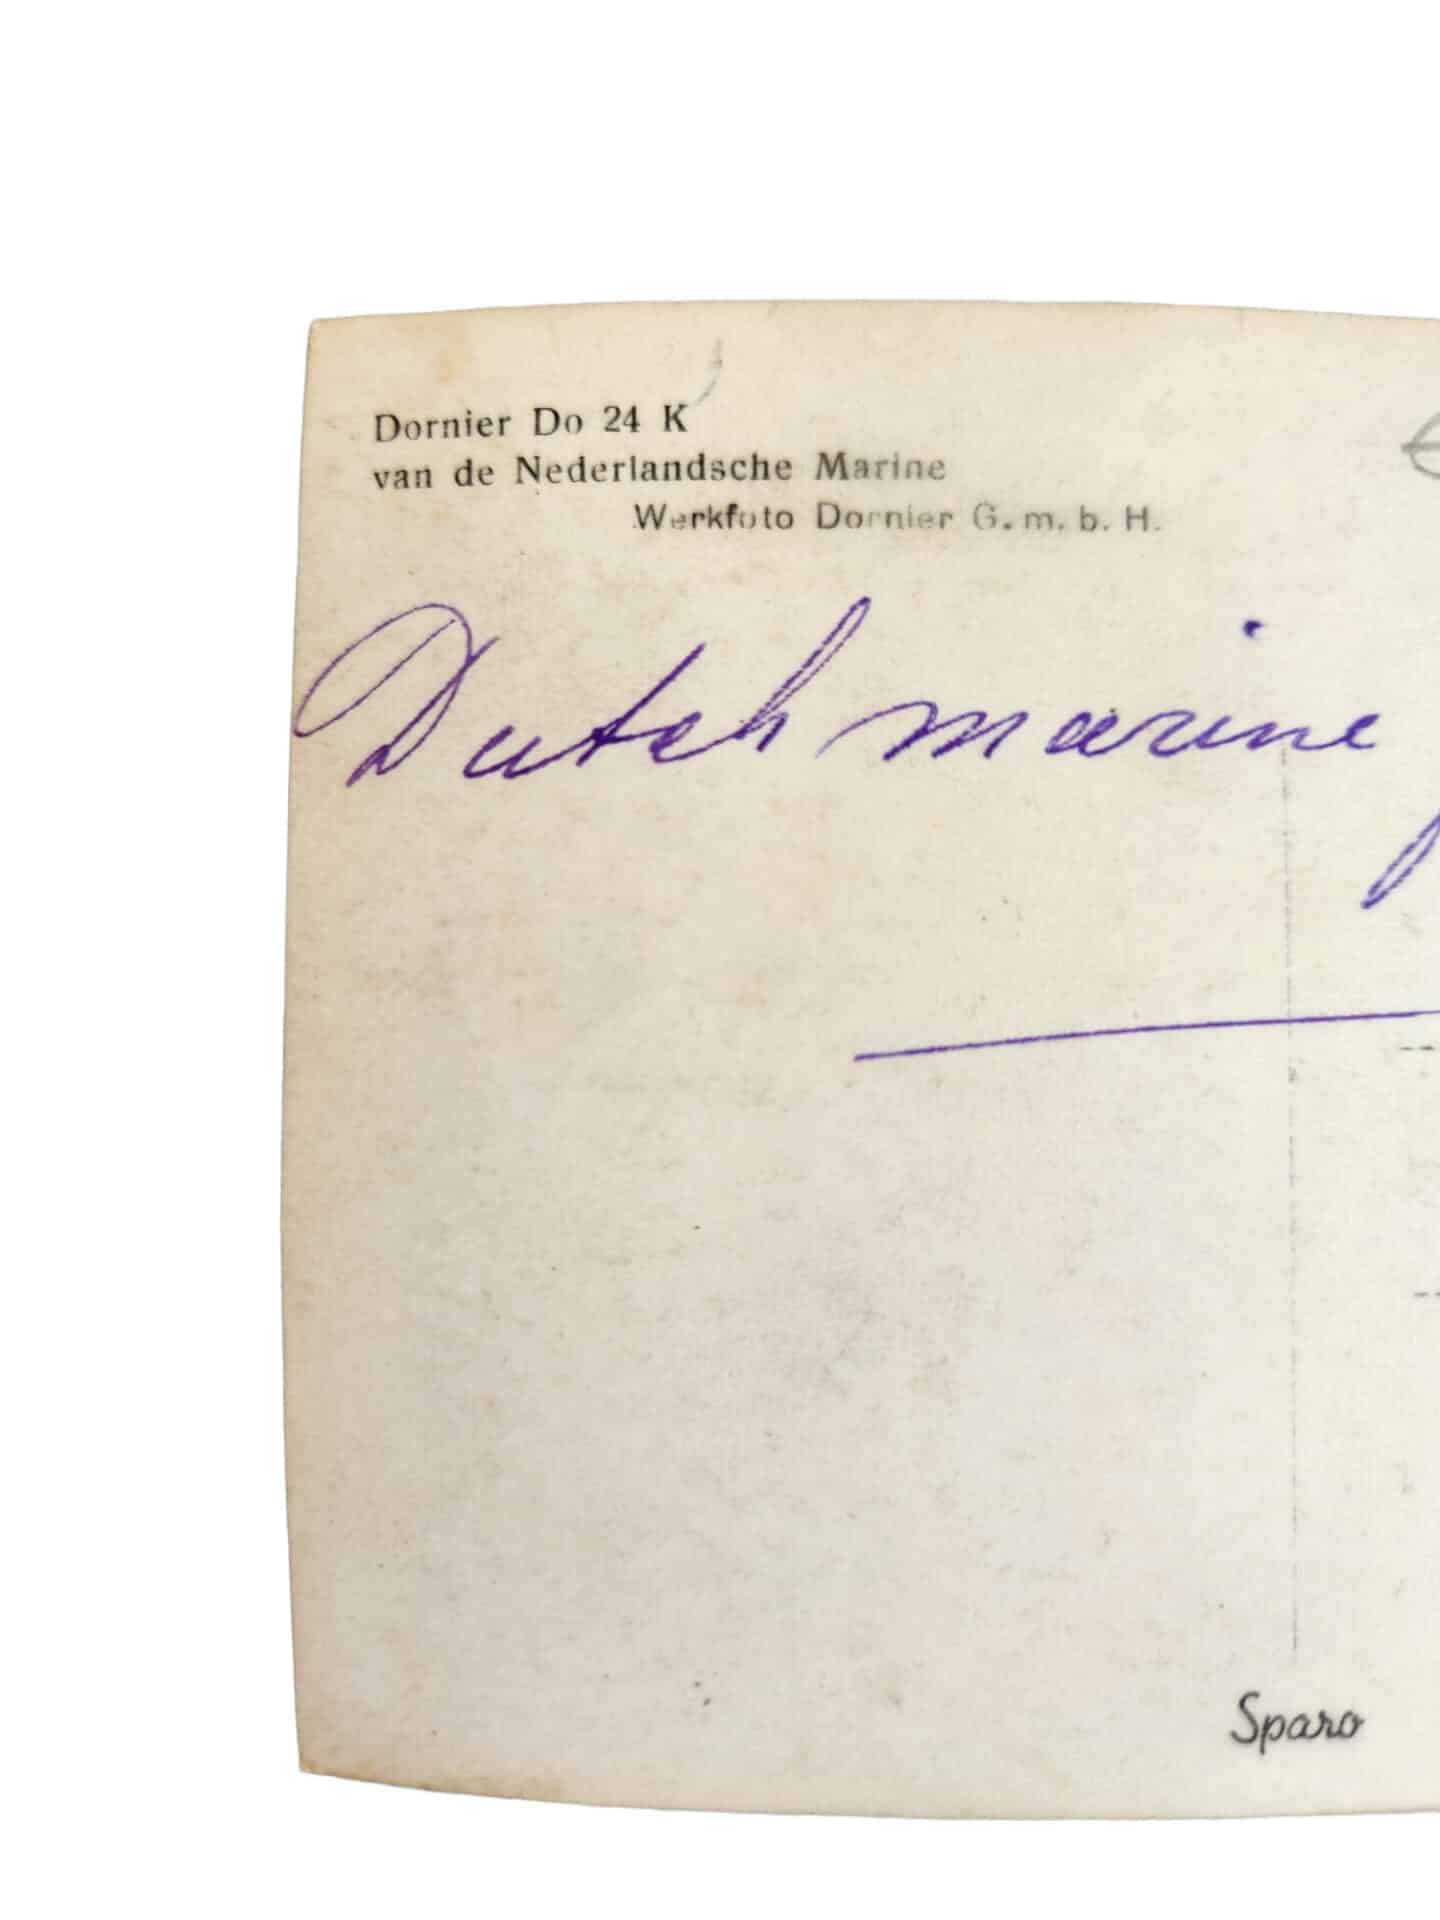 Dornier Do 24 K
van de Nederlandsche Marine
Werkfoto Dornier G.m.b.H.
Dutch marine
Sparo